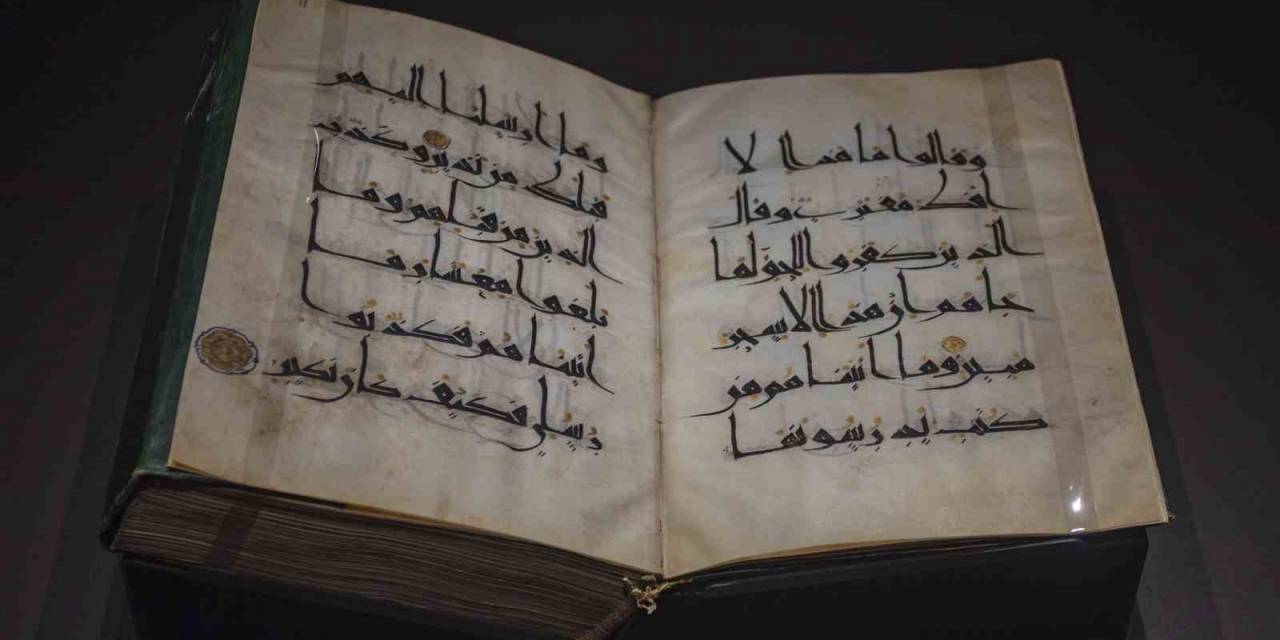 وقالوا ما هذا الا
افك مفترى وقال
الذين كفروا للحق لما
جاهم ان هذا الا سحر
مبين وما اتيناهم من
كتب يدرسونها
وما ارسلنا اليهم
قبلك من نذير وكذب
الذين من قبلهم وما
بلغوا معشار ما
اتيناهم فكذبوا
رسلي فكيف كان نكير